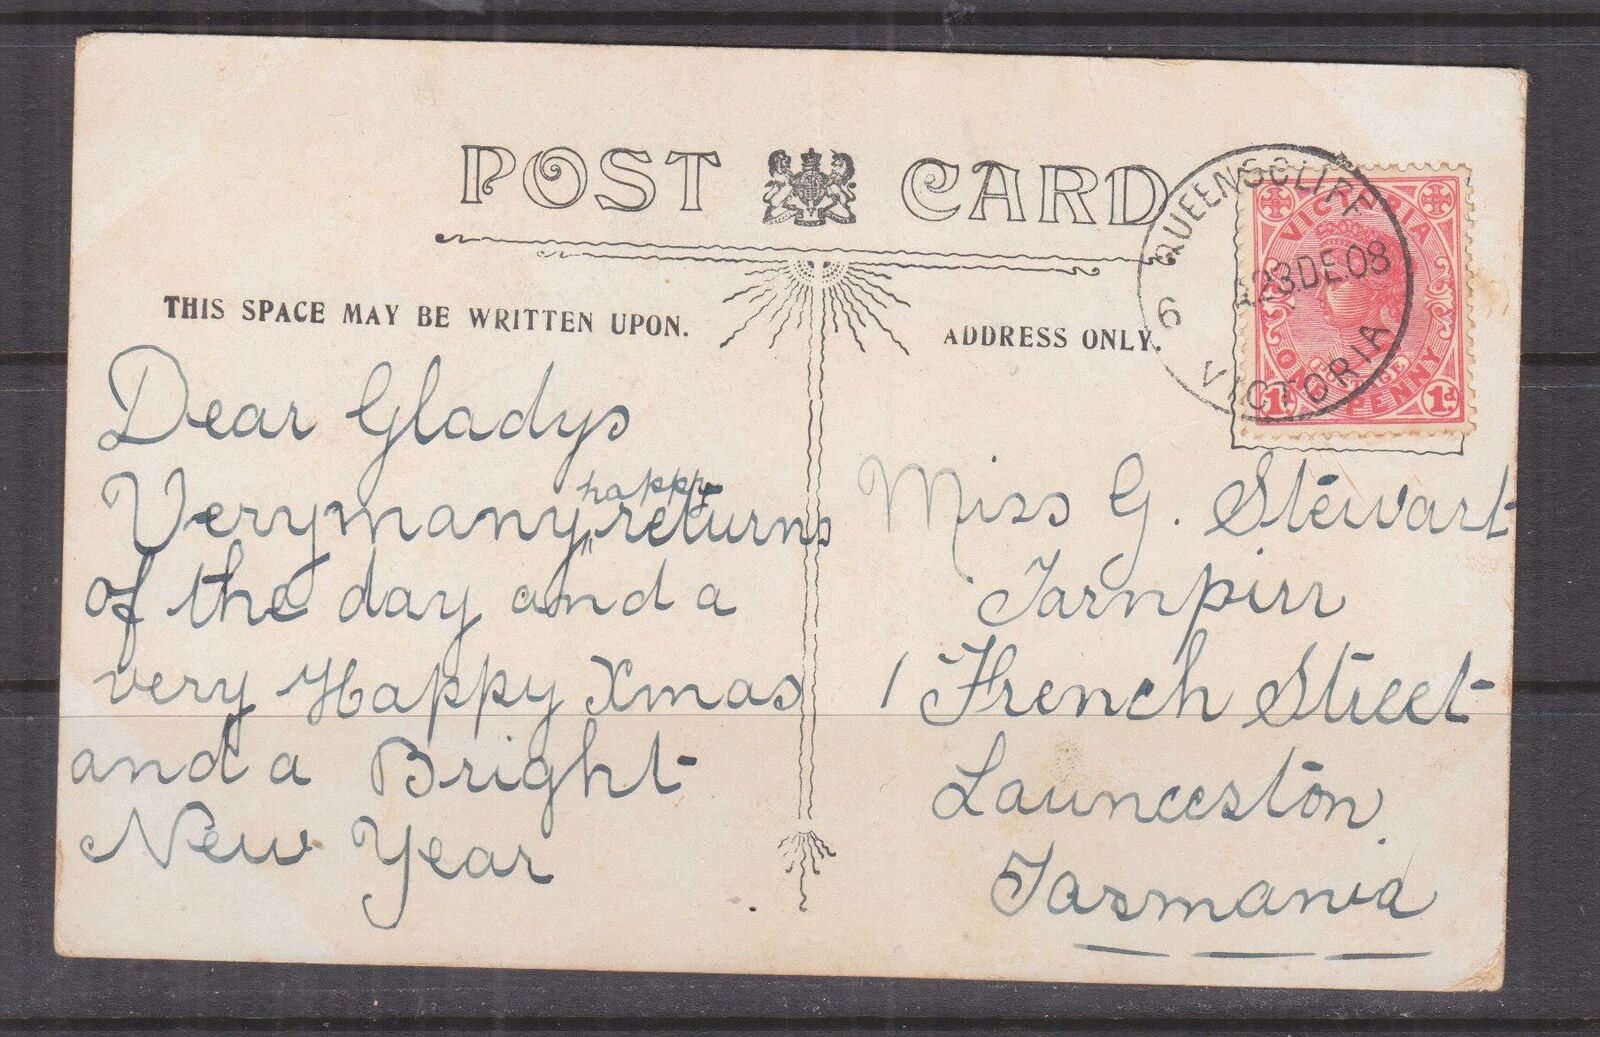 POST CARD
THIS SPACE MAY BE WRITTEN UPON.
ADDRESS ONLY.
QUEENSCLIFF
23.DE.08
6
VICTORIA
VICTORIA
POSTAGE
ONE PENNY
1d 1d
Dear Gladys
Very many happy returns
of the day and a
very Happy Xmas
and a Bright
New Year
Miss G. Stewart
Tarnpirr
1 French Street
Launceston
Tasmania